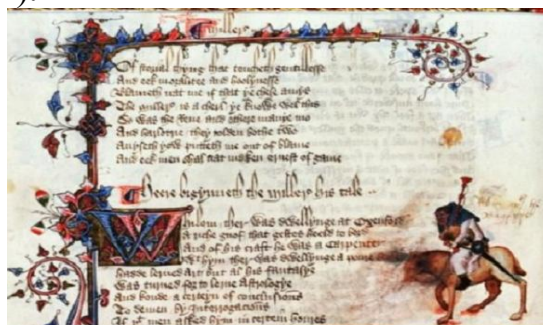 Millere
Of storial thyng that toucheth gentillesse
And eek moralitee and hoolynesse
Blameth nat me if that ye chese amys
The Millere is a cherl ye knowe wel this
So was the Reue and othere manye mo
And harlotrie they tolden bothe two
Auyseth yow putteth me out of blame
And eek men shal nat maken ernest of game
Heere bigynneth the Millere his tale
Whilom ther was dwellynge at Oxenford
A riche gnof that gestes heeld to
And of his craft he was a Carpenter
With hym ther was dwellynge a poure
Hadde lerned Art but al his fantasye
Was turned for to lerne Astrologye
And koude a certeyn of conclusions
To demen by Interrogacions
men asked hym in certein houres